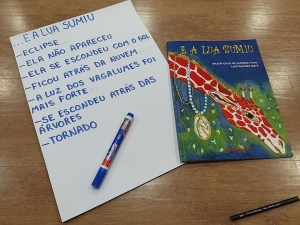 ...E A LUA SUMIU
-ECLIPSE
-ELA NÃO APARECEU
-ELA SE ESCONDEU COM O SOL
-FICOU ATRÁS DA NUVEM
-A LUZ DOS VAGALUMES FOI
MAIS FORTE
-SE ESCONDEU ATRÁS DAS
ÁRVORES
-TORNADO
...E A LUA SUMIU